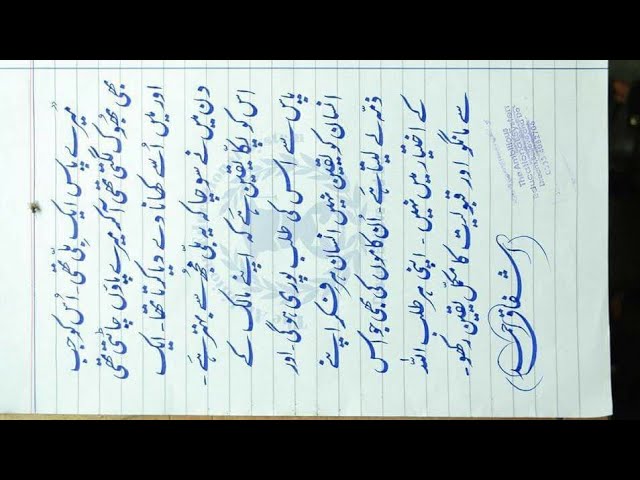 "میرے پاس ایک بلّی تھی۔ اُس کو جب
بھی بھوک لگتی تھی آکر میرے پاؤں چاٹتی تھی
اور میں اُسے کھانا دے دیا کرتا تھا۔ ایک
دن میں نے سوچا کہ یہ بلی مجھ سے بہتر ہے۔
اس کو پکا یقین ہے کہ اپنے مالک کے
پاس سے اس کی طلب پوری ہوگی اور
انسان کو یقین نہیں انسان ہر فکر اپنے
ذمّہ لے لیتا ہے۔ اُن کاموں کی بھی جو اس
کے اختیار میں نہیں۔ اپنی ہر طلب اللہ
سے مانگو اور قبولیت کا مکمل یقین رکھو۔
(اشفاق احمد)
The
Educational System